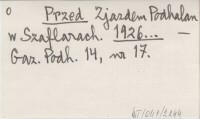 o Przed Zjazdem Podhalan
w Szaflarach. 1926... —
Gaz. Podh. 14, nr 17.